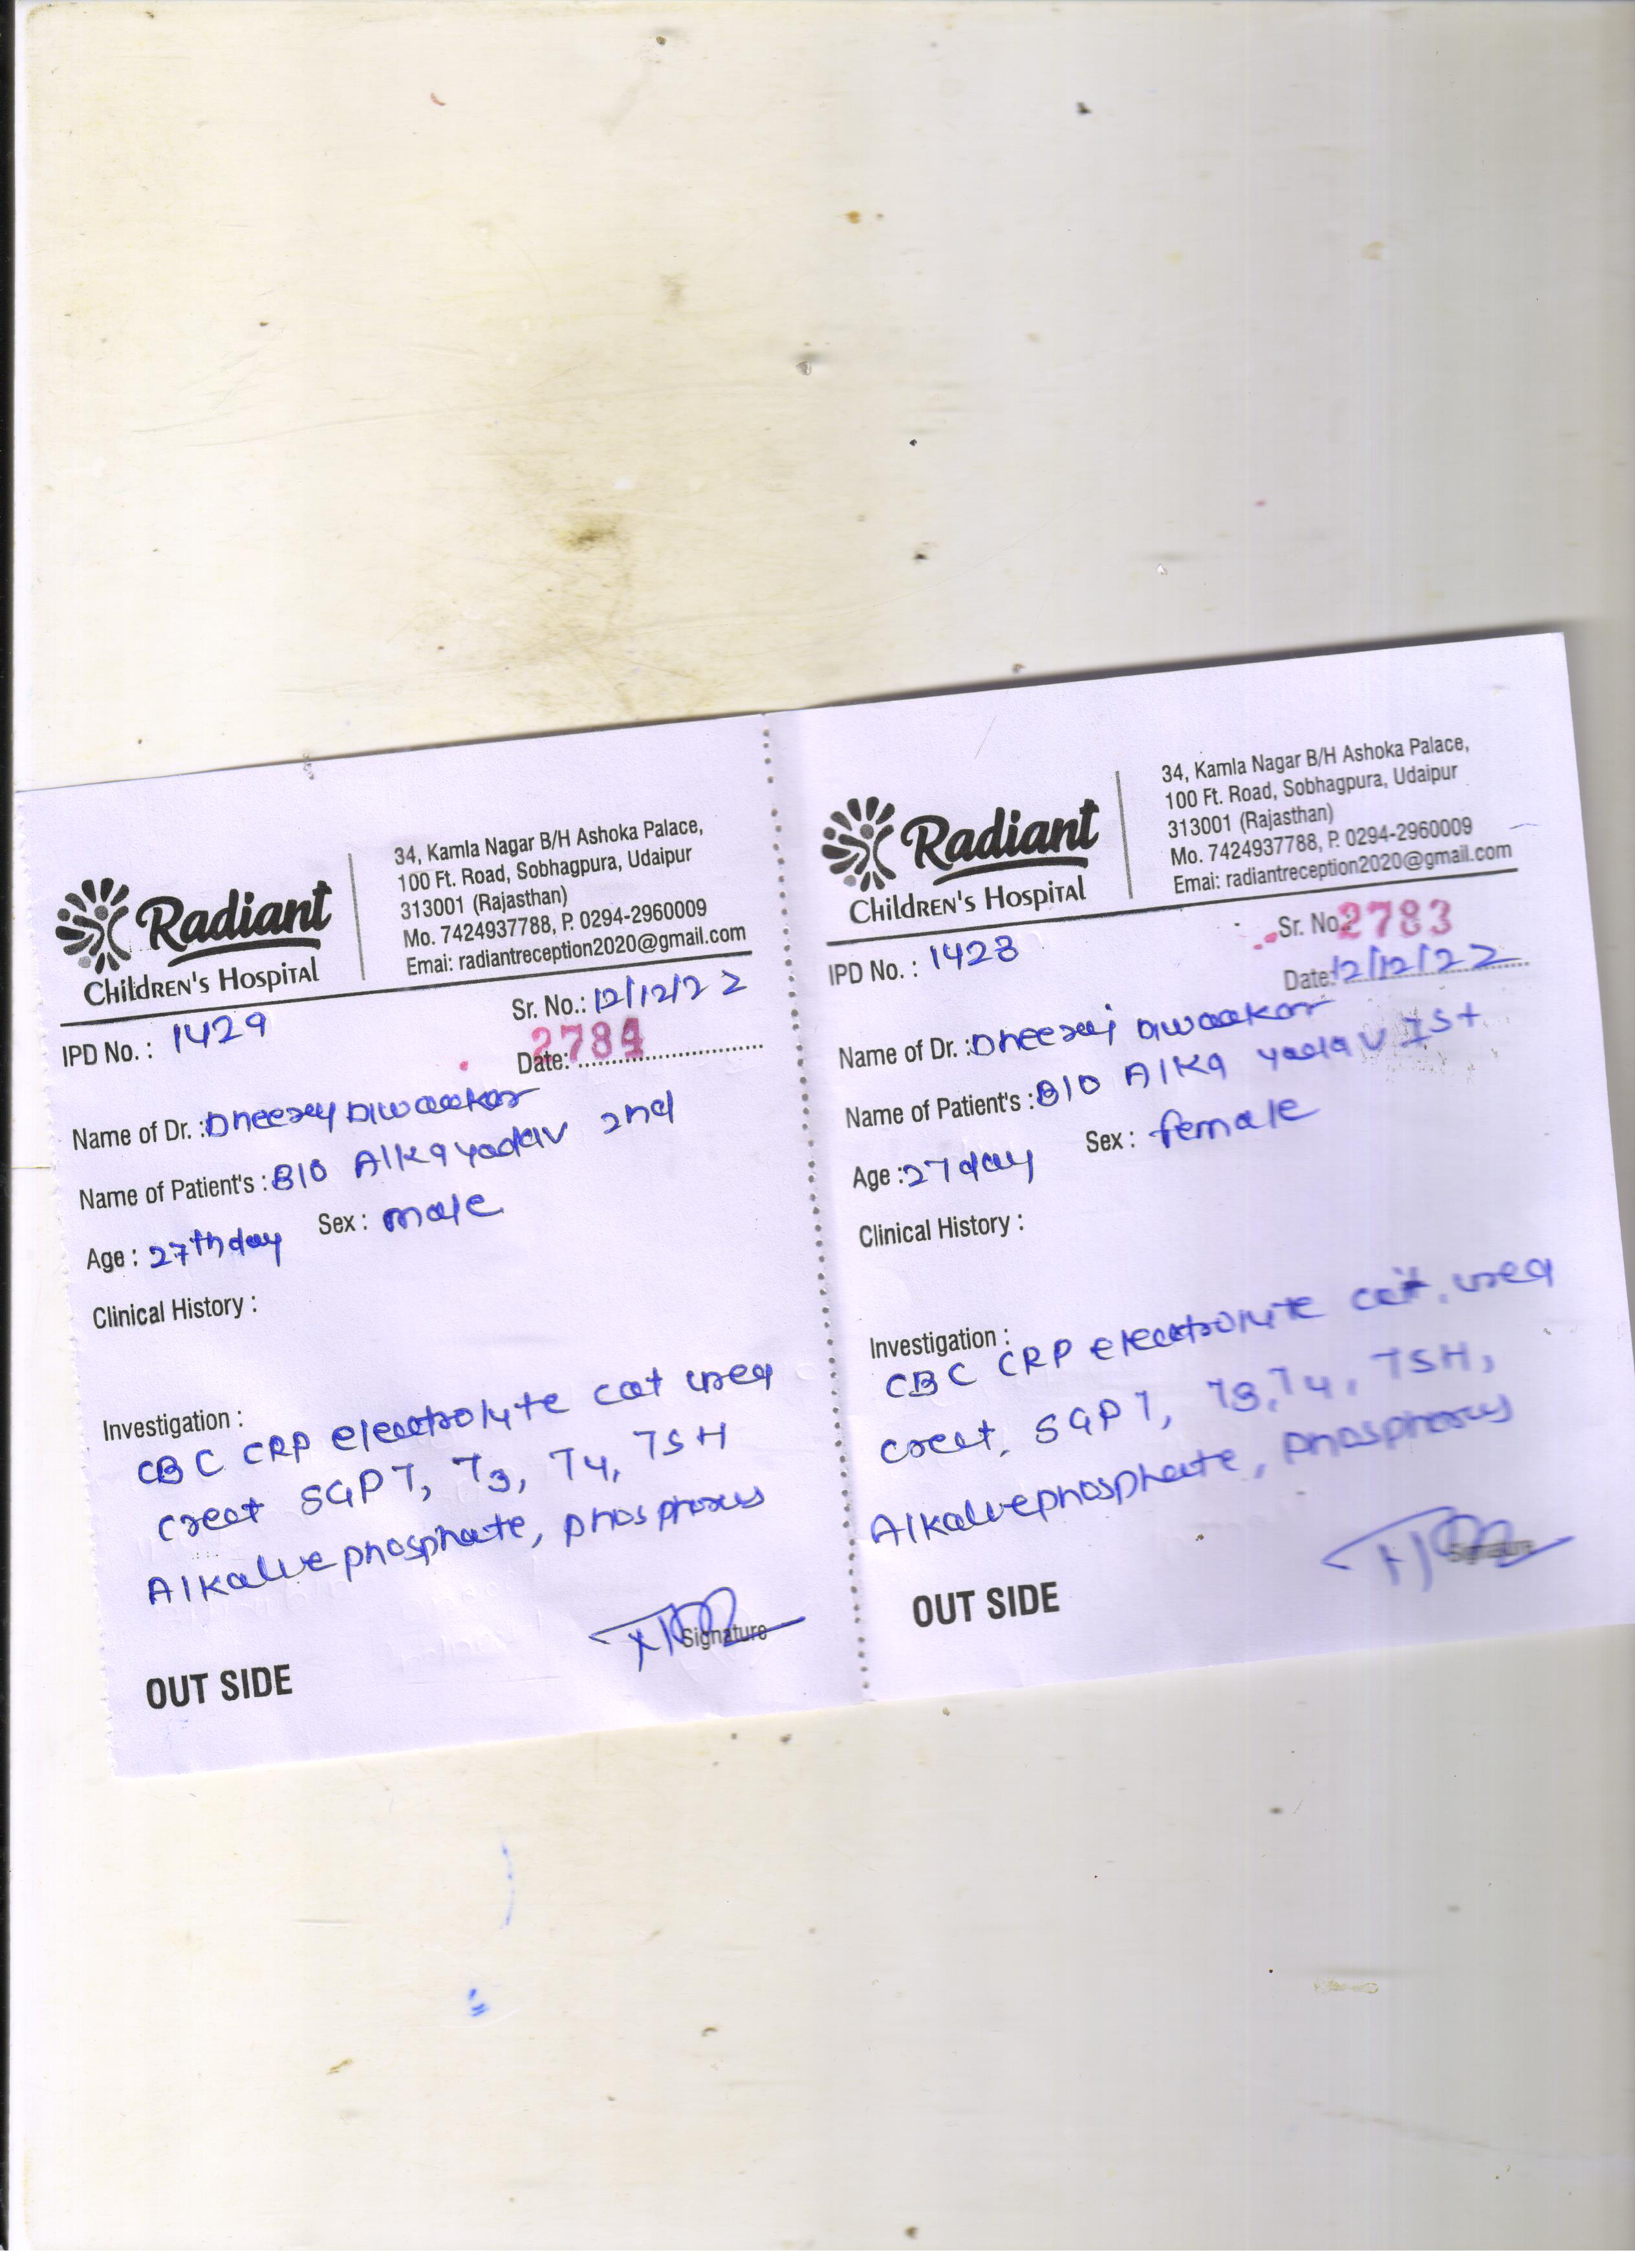 Radiant
Children's Hospital
34, Kamla Nagar B/H Ashoka Palace,
100 Ft. Road, Sobhagpura, Udaipur
313001 (Rajasthan)
Mo. 7424937788, P. 0294-2960009
Emai: radiantreception2020@gmail.com
IPD No. : 1429
Sr. No.: 12/12/22
2784
Date:
Name of Dr. : Dheeraj Diwaakar
Name of Patient's : B/O Alka yadav 2nd
Age : 27th day Sex : male
Clinical History :
Investigation :
CBC CRP electrolyte cat urea
creat SGPT, T3, T4, TSH
Alkaline phosphate, phosphorus
Signature
OUT SIDE
Radiant
Children's Hospital
34, Kamla Nagar B/H Ashoka Palace,
100 Ft. Road, Sobhagpura, Udaipur
313001 (Rajasthan)
Mo. 7424937788, P. 0294-2960009
Emai: radiantreception2020@gmail.com
IPD No. : 1428
Sr. No. 2783
Date: 12/12/22
Name of Dr. : Dheeraj Diwaakar
Name of Patient's : B/O Alka yadav 1st
Age : 27 day Sex : female
Clinical History :
Investigation :
CBC CRP electrolyte urea
creat, SGPT, T3, T4, TSH,
Alkaline phosphate, phosphorus
Signature
OUT SIDE